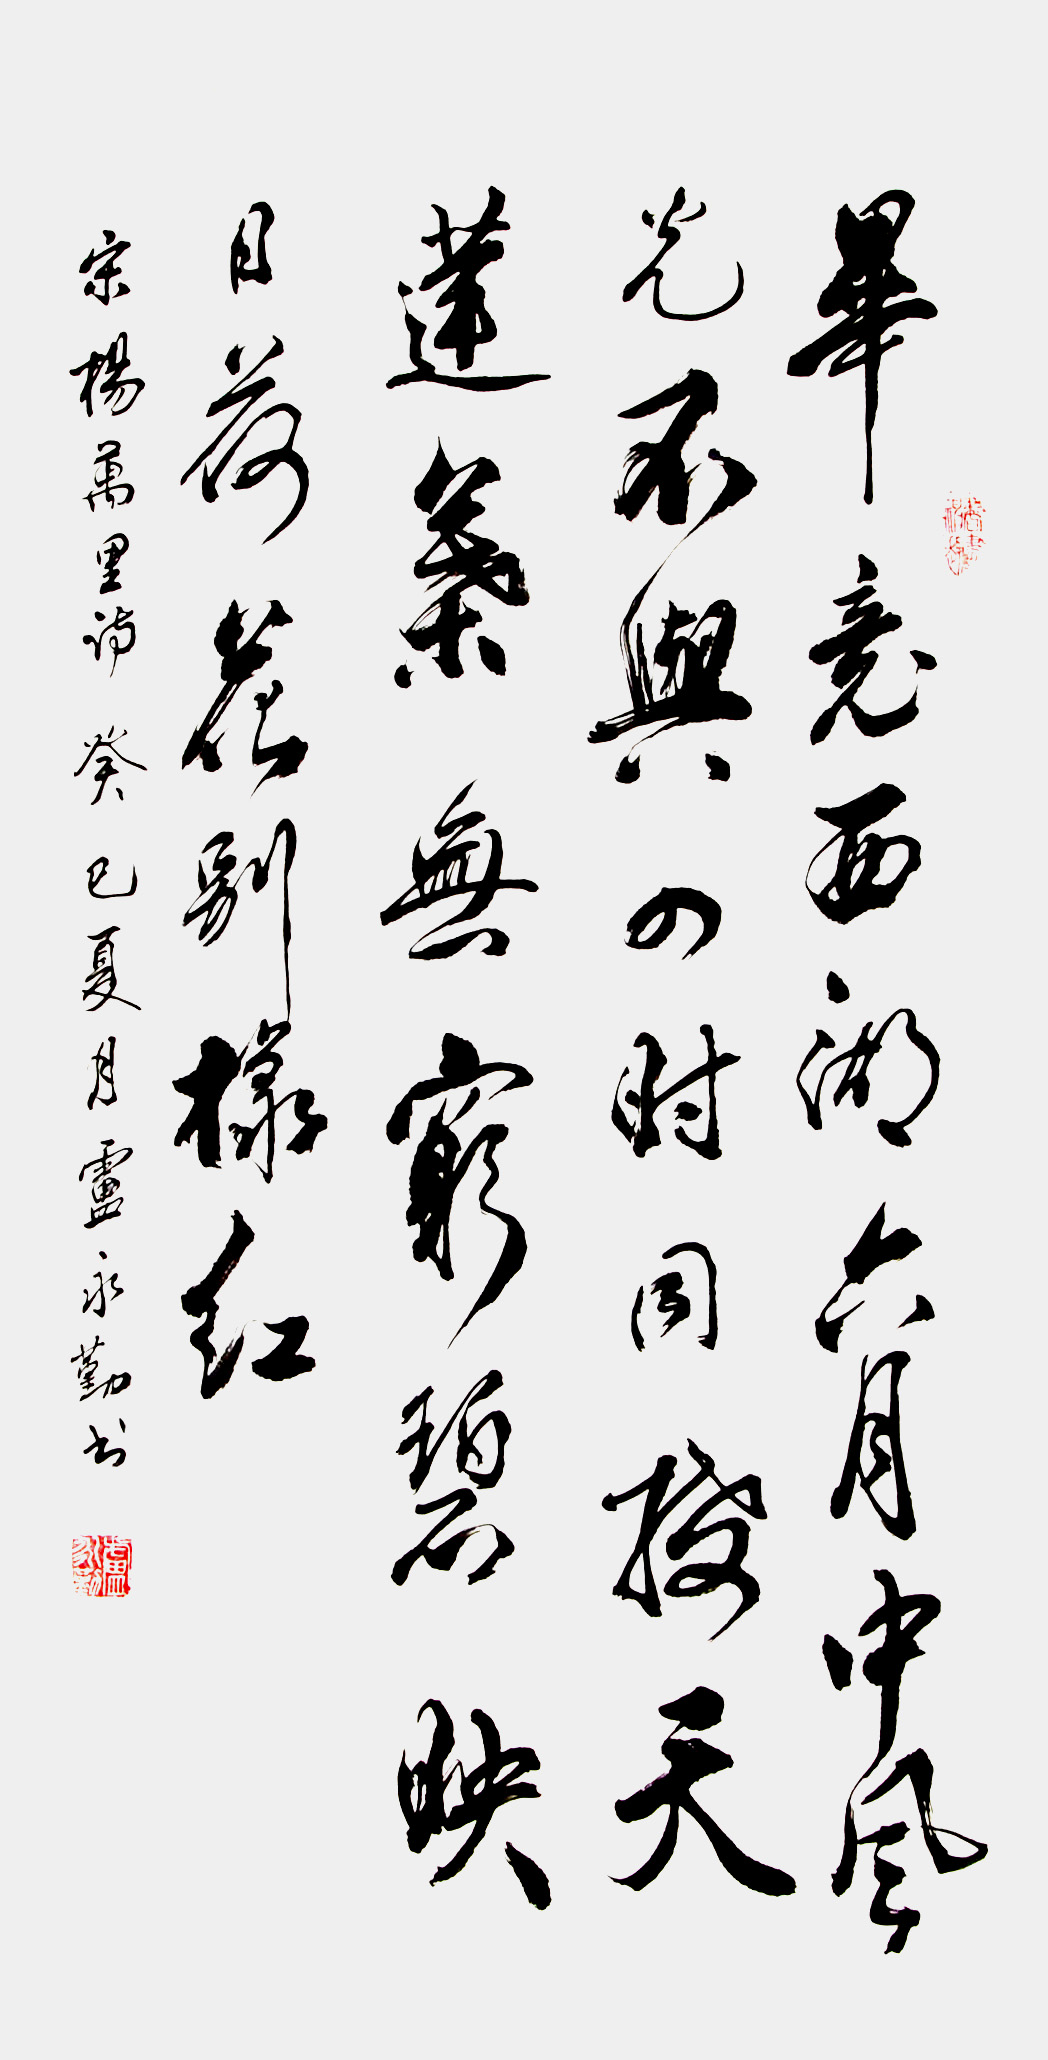 畢竟西湖六月中风
光不與四时同接天
蓮葉無窮碧映
日荷花別樣红
宋楊萬里詩 癸巳夏月盧永勤书
盧永勤